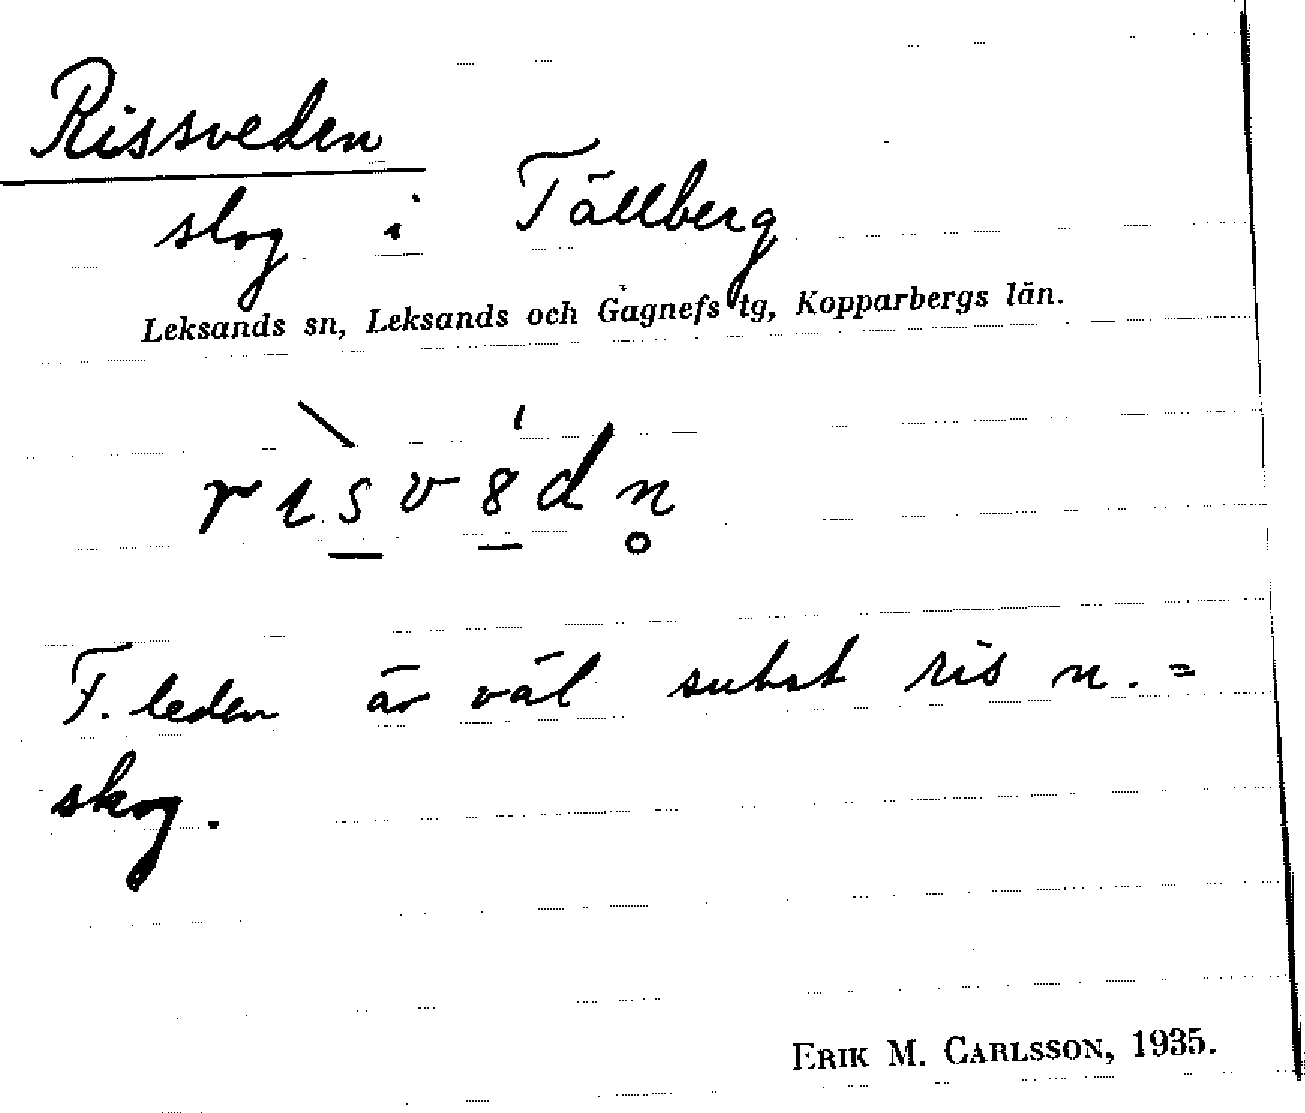 Rissveden
skog i Tällberg
Leksands sn, Leksands och Gagnefs tg, Kopparbergs län.
F. leden är väl subst ris n. =
skog.
ERIK M. CARLSSON, 1935.